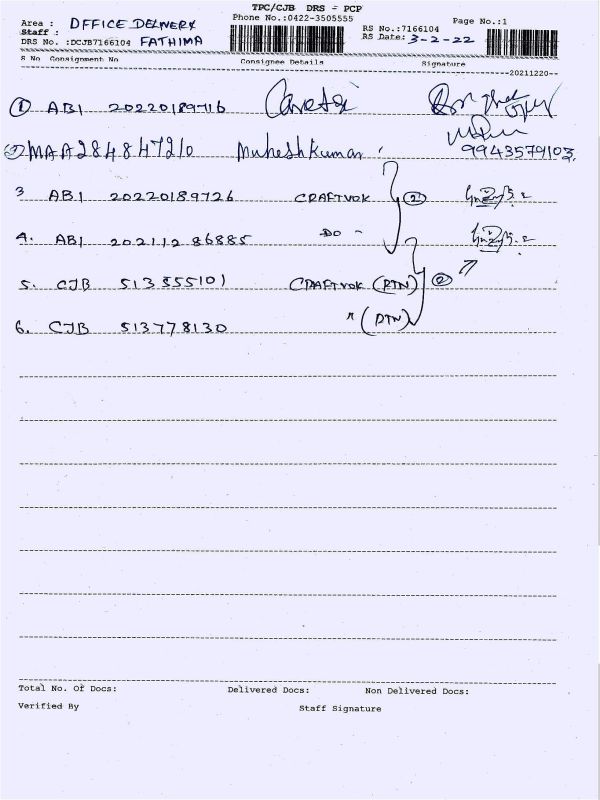 TPC/CJB DRS - PCP
Area : OFFICE DELIVERY Phone No.:0422-3505555 RS No.:7166104 Page No.:1
Staff :
DRS No. :DCJB7166104 FATHIMA RS Date: 3-2-22
S No Consignment No Consignee Details Signature
20211220
1 AB1 20220189716
2 MAA284847210 Muheshkumar 9943579103
3 AB1 20220189726 CRAFTVOK (2)
4. AB1 202112 86885 DO -
5. CJB 513555101 CRAFTVOK (RTN) (2)
6. CJB 513778130 " (RTN)
Total No. Of Docs: Delivered Docs: Non Delivered Docs:
Verified By Staff Signature